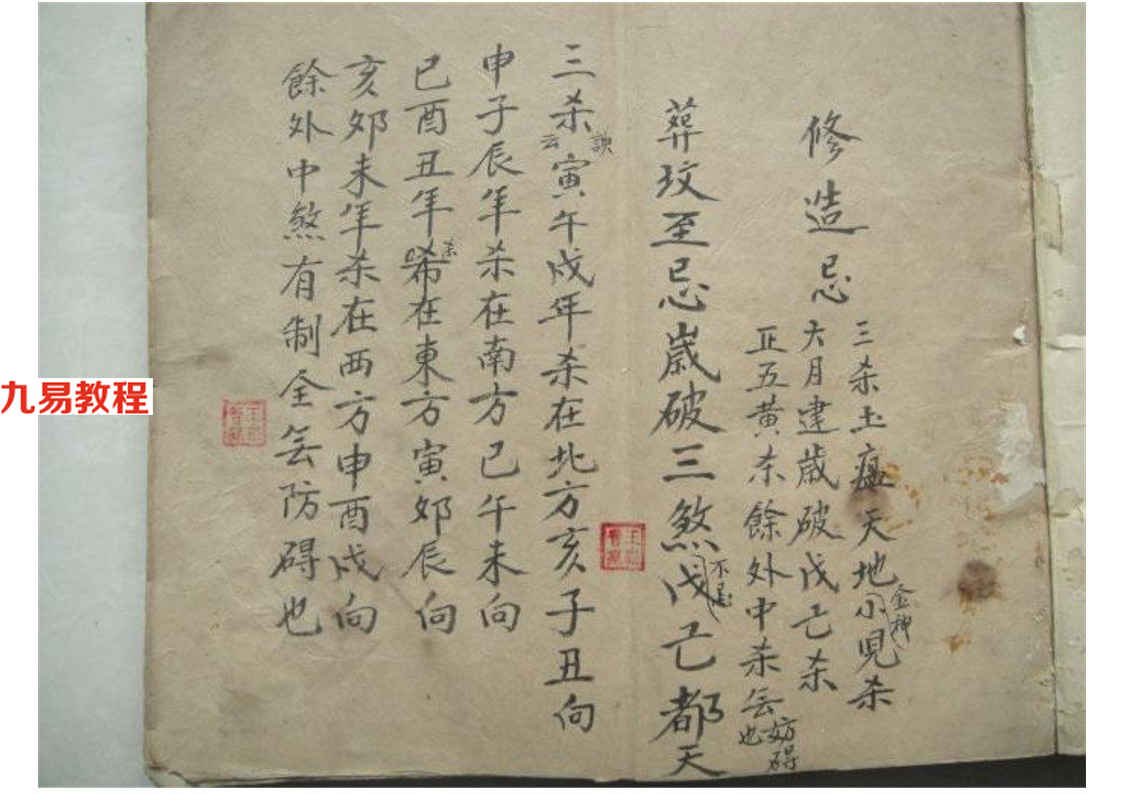 修造忌
三杀土瘟天地金神小児杀
六月建歳破戊亡杀
正五黄杀餘外中杀妨碍也
葬坟至忌歳破三煞戊亡都天
不忌
三杀訣云寅午戌年杀在北方亥子丑向
申子辰年杀在南方巳午未向
巳酉丑年杀在東方寅卯辰向
亥卯未年杀在西方申酉戌向
餘外中煞有制全防碍也
九易教程